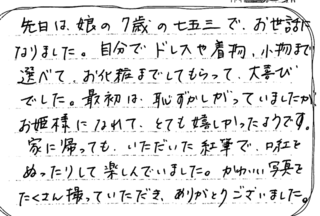 先日は、娘の7歳の七五三で、お世話に
なりました。自分でドレスや着物、小物まで
選べて、お化粧までしてもらって、大喜び
でした。最初は、恥ずかしがっていましたが
お姫様になれて、とても嬉しかったようです。
家に帰っても、いただいた紅筆で、口紅を
ぬったりして楽しんでいました。かわいい写真を
たくさん撮っていただき、ありがとうございました。